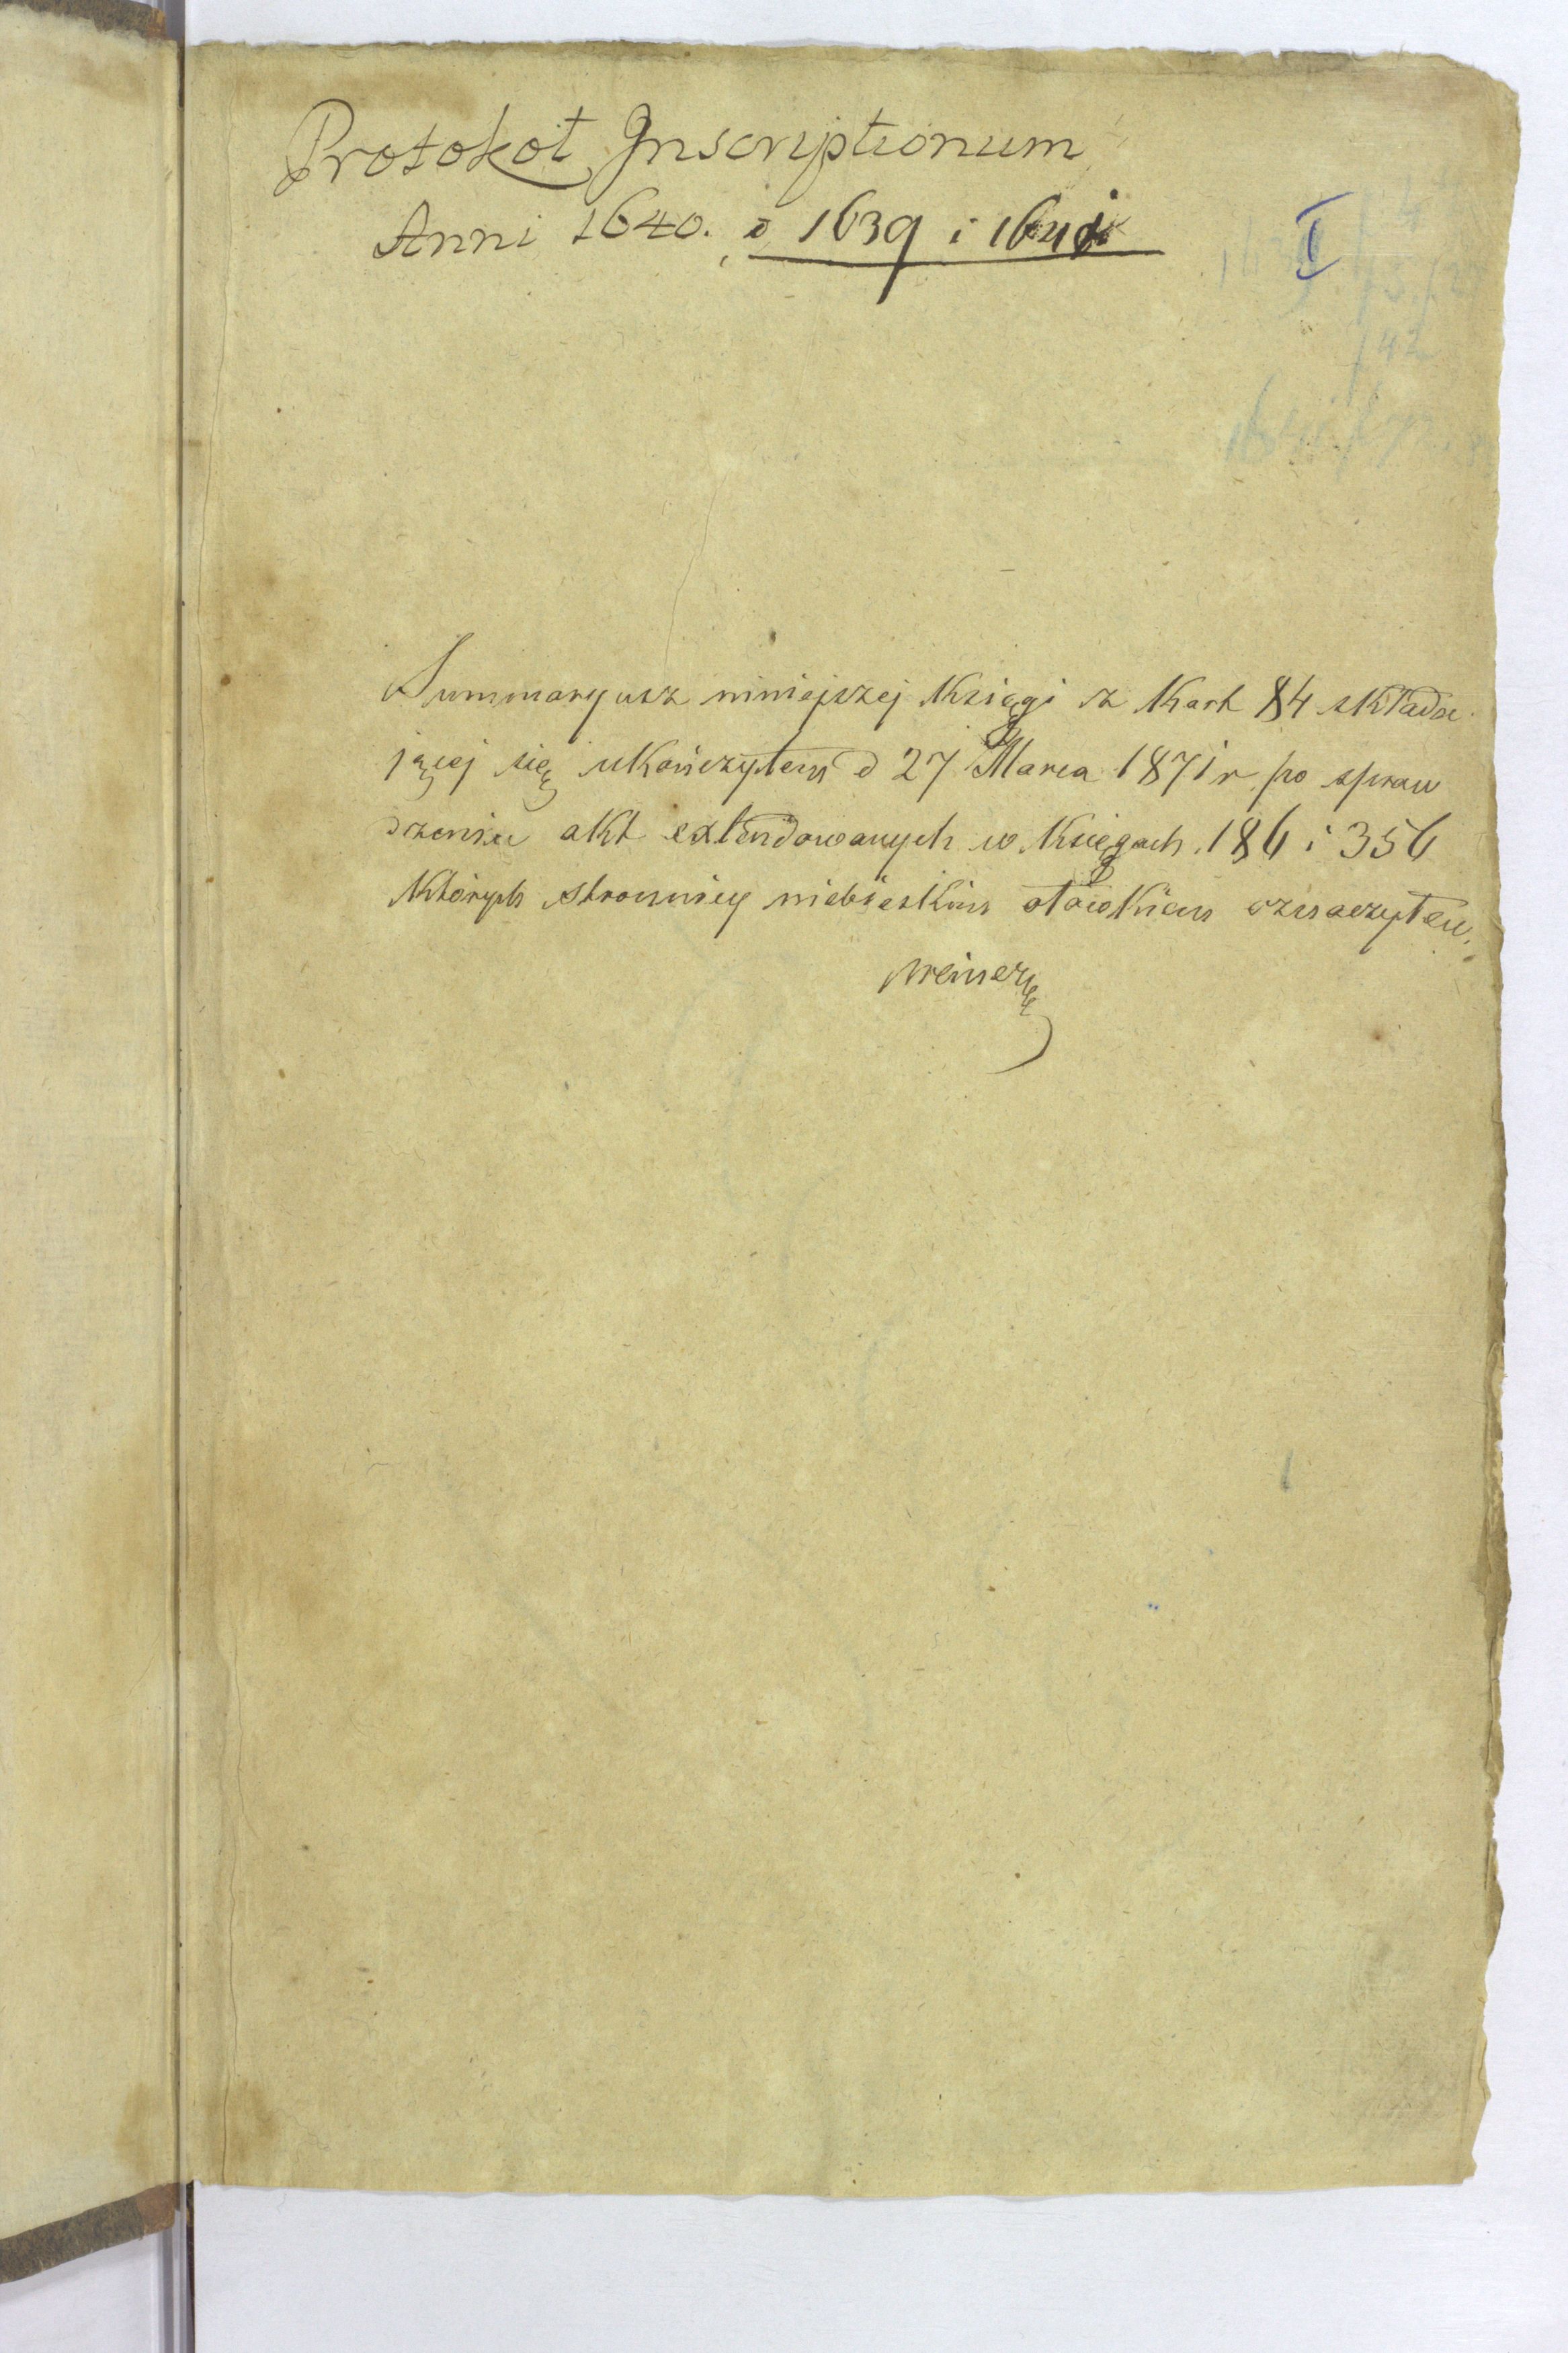 Protokoł Inscriptionum
Anni 1640. i 1639 i 1641
I
Summaryusz niniejszej Księgi z Kart 84 składa
jącej się ukończyłem d 27 Marca 1871 r po spraw
dzeniu akt extendowanych w Księgach 186 i 356
Których stronnicy niebieskim ołówkiem oznaczyłem.